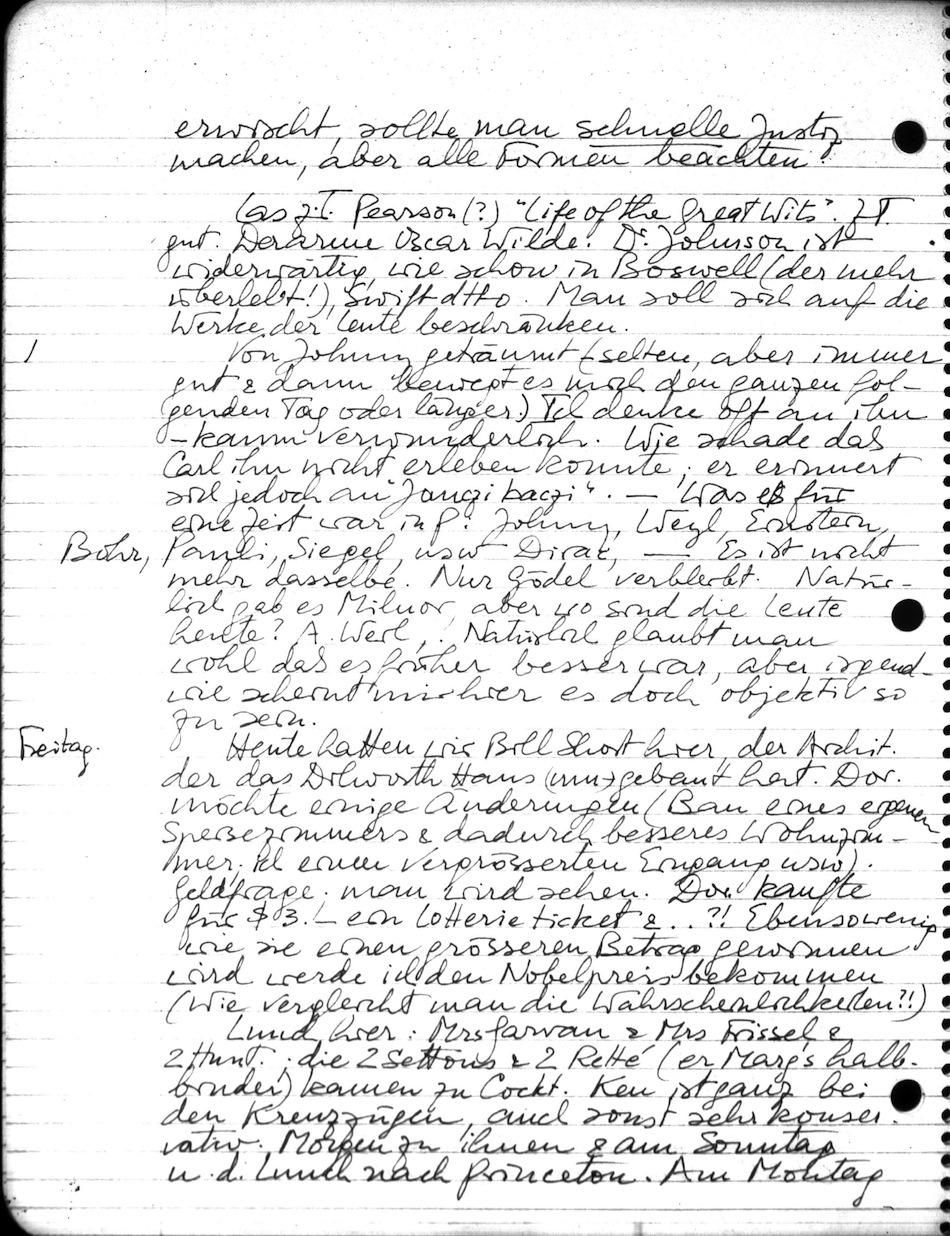 erwischt, sollte man schnelle Justiz
machen, aber alle Formen beachten!
Las z.T. Pearson (?) "Life of the Great Wits". Z T
gut. Der arme Oscar Wilde! Dr. Johnson ist
widerwärtig, wie schon in Boswell (der mehr
überlebt!), Swift dtto. Man soll sich auf die
Werke der Leute beschränken.
/ Von Johnny geträumt (selten, aber immer
gut & dann bewegt es mich den ganzen fol-
genden Tag oder länger.) Ich denke oft an ihn
- kaum verwunderlich. Wie schade das
Carl ihn nicht erleben konnte, er erinnert
sich jedoch an "Jancsi baczi". — Was es für
eine Zeit war in P! Johnny, Weyl, Einstein,
Bohr, Pauli, Siegel, usw Dirac, — Es ist nicht
mehr dasselbe. Nur Gödel verbleibt. Natür-
lich gab es Milnor, aber wo sind die Leute
heute? A. Weil, ! Natürlich glaubt man
wohl das es früher besser war, aber irgend-
wie scheint mir hier es doch objektiv so
zu sein.
Freitag. Heute hatten wir Bill Short hier, der Archit.
der das Dilworth Haus (um)gebaut hat. Dor.
möchte einige Änderungen (Bau eines eigenen
Speisezimmers & dadurch besseres Wohnzim-
mer, einen vergrösserten Eingang usw).
Geldfrage; man wird sehen. Dor. kaufte
für $3.- ein Lotterie ticket & ..?! Ebensowenig
wie sie einen grösseren Betrag gewinnen
wird werde ich den Nobelpreis bekommen
(Wie vergleicht man die Wahrscheinlichkeiten?!)
Lunch hier: Mrs Garvan & Mrs Frissel &
2 Hunt.; die 2 Settons & 2 Retté (er Marg's halb-
bruder) kamen zu Cockt. Ken ist ganz bei
den Kreuzzügen, auch sonst sehr konser-
vativ. Morgen zu ihnen & am Sonntag
n. d. Lunch nach Princeton. Am Montag